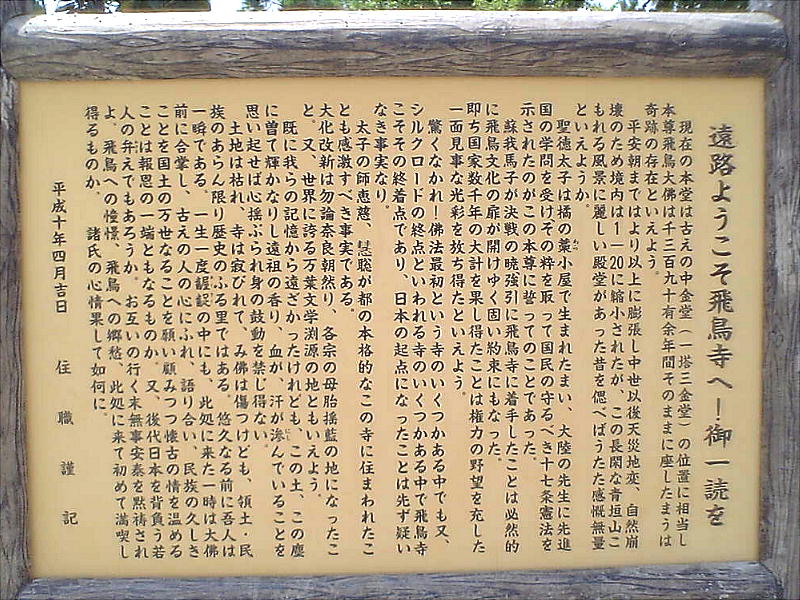 遠路ようこそ飛鳥寺へ!御一読を
現在の本堂は古えの中金堂(一塔三金堂)の位置に相当し
本尊飛鳥大佛は千三百九十有余年間そのままに座したまうは
奇跡の存在といえよう。
平安朝まではより以上に膨張し中世以後天災地変、自然崩
壊のため境内は1-20に縮小されたが、この長閑な青垣山こ
もれる風景に麗しい殿堂があった昔を偲べばうたた感慨無量
といえようか。
聖徳太子は橘の藁小屋で生まれたまい、大陸の先生に先進
国の学問を受けその粋を取って国民の守るべき十七条憲法を
示されたのがこの本尊に誓ってのことであった。
蘇我馬子が決戦の暁強引に飛鳥寺に着手したことは必然的
に飛鳥文化の扉が開けゆく固い約束にもなった。
即ち国家数千年の大計を果し得たことは権力の野望を充した
一面見事な光彩を放ち得たといえよう。
驚くなかれ!佛法最初という寺のいくつかある中でも又、
シルクロードの終点といわれる寺のいくつかある中で飛鳥寺
こそその終着点であり、日本の起点になったことは先ず疑い
なき事実なり。
太子の師恵慈、慧聡が都の本格的なこの寺に住まわれたこ
とも感激すべき事実である。
と。又、世界に誇る万葉文学渕源の地ともいえよう。
大化改新は勿論奈良朝然り、各宗の母胎揺籃の地になったこ
既に我らの記憶から遠ざかったけれども、この土、この塵
に曽て輝かなりし遠祖の香り、血が、汗が滲んでいることを
思い起せば心揺ぶられ身の鼓動を禁じ得ない。
土地は枯れ、寺は寂びれて、み佛は傷つけども、領土・民
族のあらん限り歴史のふる里ではある。悠久なる前に吾人は
一瞬である。一生一度齷齪の中にも、此処に来た一時は大佛
前に合掌し、古えの人の心にふれ、語り合い、民族の久しき
ことを国土の万世なることを願い顧みつつ懐古の情を温める
ことは報恩の一端ともなるものか。又、後代日本を背負う若
人の弁えでもあろうか。お互いの行く末無事安泰を黙祷され
よ。飛鳥への憧憬、飛鳥への郷愁、此処に来て初めて満喫し
得るものか。諸氏の心情果して如何に。
平成十年四月吉日 住職謹記